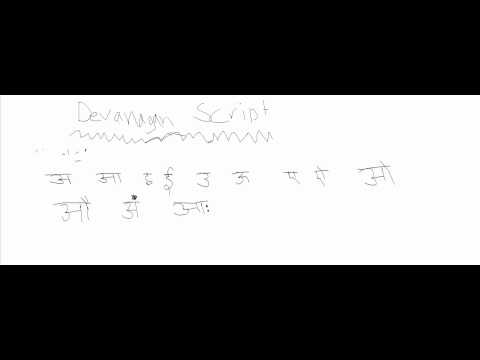 Devanagari Script
अ आ इ ई उ ऊ ए ऐ ओ
औ अं आः